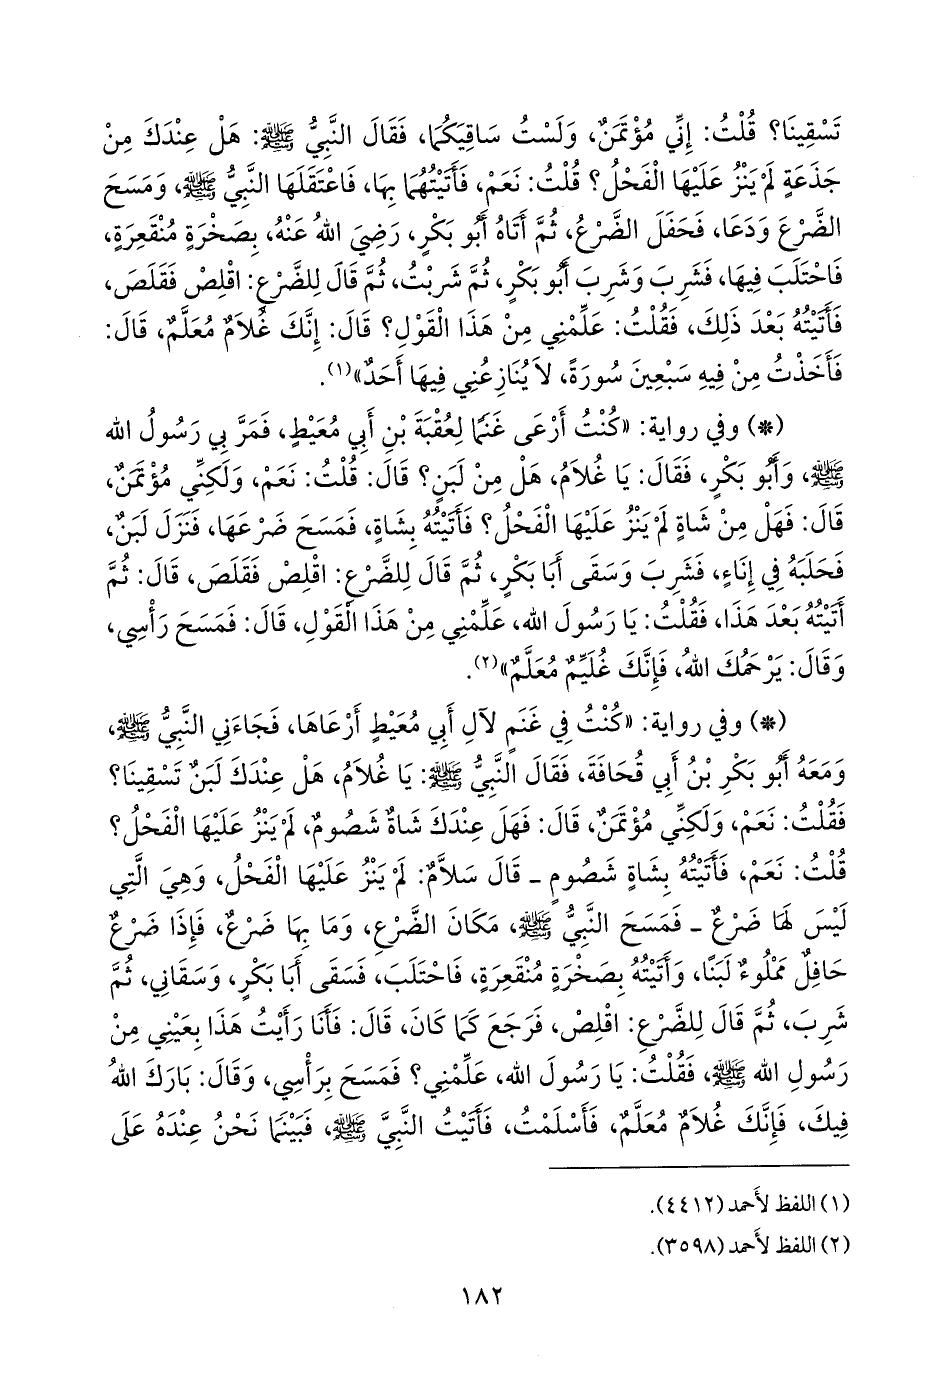 تَسْقِينَا؟ قُلْتُ: إِنِّي مُؤْتَمَنٌ، وَلَسْتُ سَاقِيَكُمَا، فَقَالَ النَّبِيُّ ﷺ: هَلْ عِنْدَكَ مِنْ
جَذَعَةٍ لَمْ يَنْزُ عَلَيْهَا الْفَحْلُ؟ قُلْتُ: نَعَمْ، فَأَتَيْتُهُمَا بِهَا، فَاعْتَقَلَهَا النَّبِيُّ ﷺ، وَمَسَحَ
الضَّرْعَ وَدَعَا، فَحَفَلَ الضَّرْعُ، ثُمَّ أَتَاهُ أَبُو بَكْرٍ، رَضِيَ اللهُ عَنْهُ، بِصَخْرَةٍ مُنْقَعِرَةٍ،
فَاحْتَلَبَ فِيهَا، فَشَرِبَ وَشَرِبَ أَبُو بَكْرٍ، ثُمَّ شَرِبْتُ، ثُمَّ قَالَ لِلضَّرْعِ: اقْلِصْ فَقَلَصَ،
فَأَتَيْتُهُ بَعْدَ ذَلِكَ، فَقُلْتُ: عَلِّمْنِي مِنْ هَذَا الْقَوْلِ؟ قَالَ: إِنَّكَ غُلَامٌ مُعَلَّمٌ، قَالَ:
فَأَخَذْتُ مِنْ فِيهِ سَبْعِينَ سُورَةً، لاَ يُنَازِعُنِي فِيهَا أَحَدٌ»(١).
(*) وفي رواية: «كُنْتُ أَرْعَى غَنَمًا لِعُقْبَةَ بْنِ أَبِي مُعَيْطٍ، فَمَرَّ بِي رَسُولُ الله
ﷺ، وَأَبُو بَكْرٍ، فَقَالَ: يَا غُلَامُ، هَلْ مِنْ لَبَنٍ؟ قَالَ: قُلْتُ: نَعَمْ، وَلَكِنِّي مُؤْتَمَنٌ،
قَالَ: فَهَلْ مِنْ شَاةٍ لَمْ يَنْزُ عَلَيْهَا الْفَحْلُ؟ فَأَتَيْتُهُ بِشَاةٍ، فَمَسَحَ ضَرْعَهَا، فَنَزَلَ لَبَنٌ،
فَحَلَبَهُ فِي إِنَاءٍ، فَشَرِبَ وَسَقَى أَبَا بَكْرٍ، ثُمَّ قَالَ لِلضَّرْعِ: اقْلِصْ فَقَلَصَ، قَالَ: ثُمَّ
أَتَيْتُهُ بَعْدَ هَذَا، فَقُلْتُ: يَا رَسُولَ الله، عَلِّمْنِي مِنْ هَذَا الْقَوْلِ، قَالَ: فَمَسَحَ رَأْسِي،
وَقَالَ: يَرْحَمُكَ اللهُ، فَإِنَّكَ غُلَيِّمٌ مُعَلَّمٌ»(٢).
(*) وفي رواية: «كُنْتُ فِي غَنَمٍ لآلِ أَبِي مُعَيْطٍ أَرْعَاهَا، فَجَاءَنِي النَّبِيُّ ﷺ،
وَمَعَهُ أَبُو بَكْرِ بْنُ أَبِي قُحَافَةَ، فَقَالَ النَّبِيُّ ﷺ: يَا غُلَامُ، هَلْ عِنْدَكَ لَبَنٌ تَسْقِينَا؟
فَقُلْتُ: نَعَمْ، وَلَكِنِّي مُؤْتَمَنٌ، قَالَ: فَهَلْ عِنْدَكَ شَاةٌ شَصُومٌ، لَمْ يَنْزُ عَلَيْهَا الْفَحْلُ؟
قُلْتُ: نَعَمْ، فَأَتَيْتُهُ بِشَاةٍ شَصُومٍ ـ قَالَ سَلاَّمٌ: لَمْ يَنْزُ عَلَيْهَا الْفَحْلُ، وَهِيَ الَّتِي
لَيْسَ لَهَا ضَرْعٌ ـ فَمَسَحَ النَّبِيُّ ﷺ، مَكَانَ الضَّرْعِ، وَمَا بِهَا ضَرْعٌ، فَإِذَا ضَرْعٌ
حَافِلٌ مَمْلُوءٌ لَبَنًا، وَأَتَيْتُهُ بِصَخْرَةٍ مُنْقَعِرَةٍ، فَاحْتَلَبَ، فَسَقَى أَبَا بَكْرٍ، وَسَقَانِي، ثُمَّ
شَرِبَ، ثُمَّ قَالَ لِلضَّرْعِ: اقْلِصْ، فَرَجَعَ كَمَا كَانَ، قَالَ: فَأَنَا رَأَيْتُ هَذَا بِعَيْنِي مِنْ
رَسُولِ الله ﷺ، فَقُلْتُ: يَا رَسُولَ الله، عَلِّمْنِي؟ فَمَسَحَ بِرَأْسِي، وَقَالَ: بَارَكَ اللهُ
فِيكَ، فَإِنَّكَ غُلَامٌ مُعَلَّمٌ، فَأَسْلَمْتُ، فَأَتَيْتُ النَّبِيَّ ﷺ، فَبَيْنَمَا نَحْنُ عِنْدَهُ عَلَى
(١) اللفظ لأَحمد (٤٤١٢).
(٢) اللفظ لأَحمد (٣٥٩٨).
١٨٢